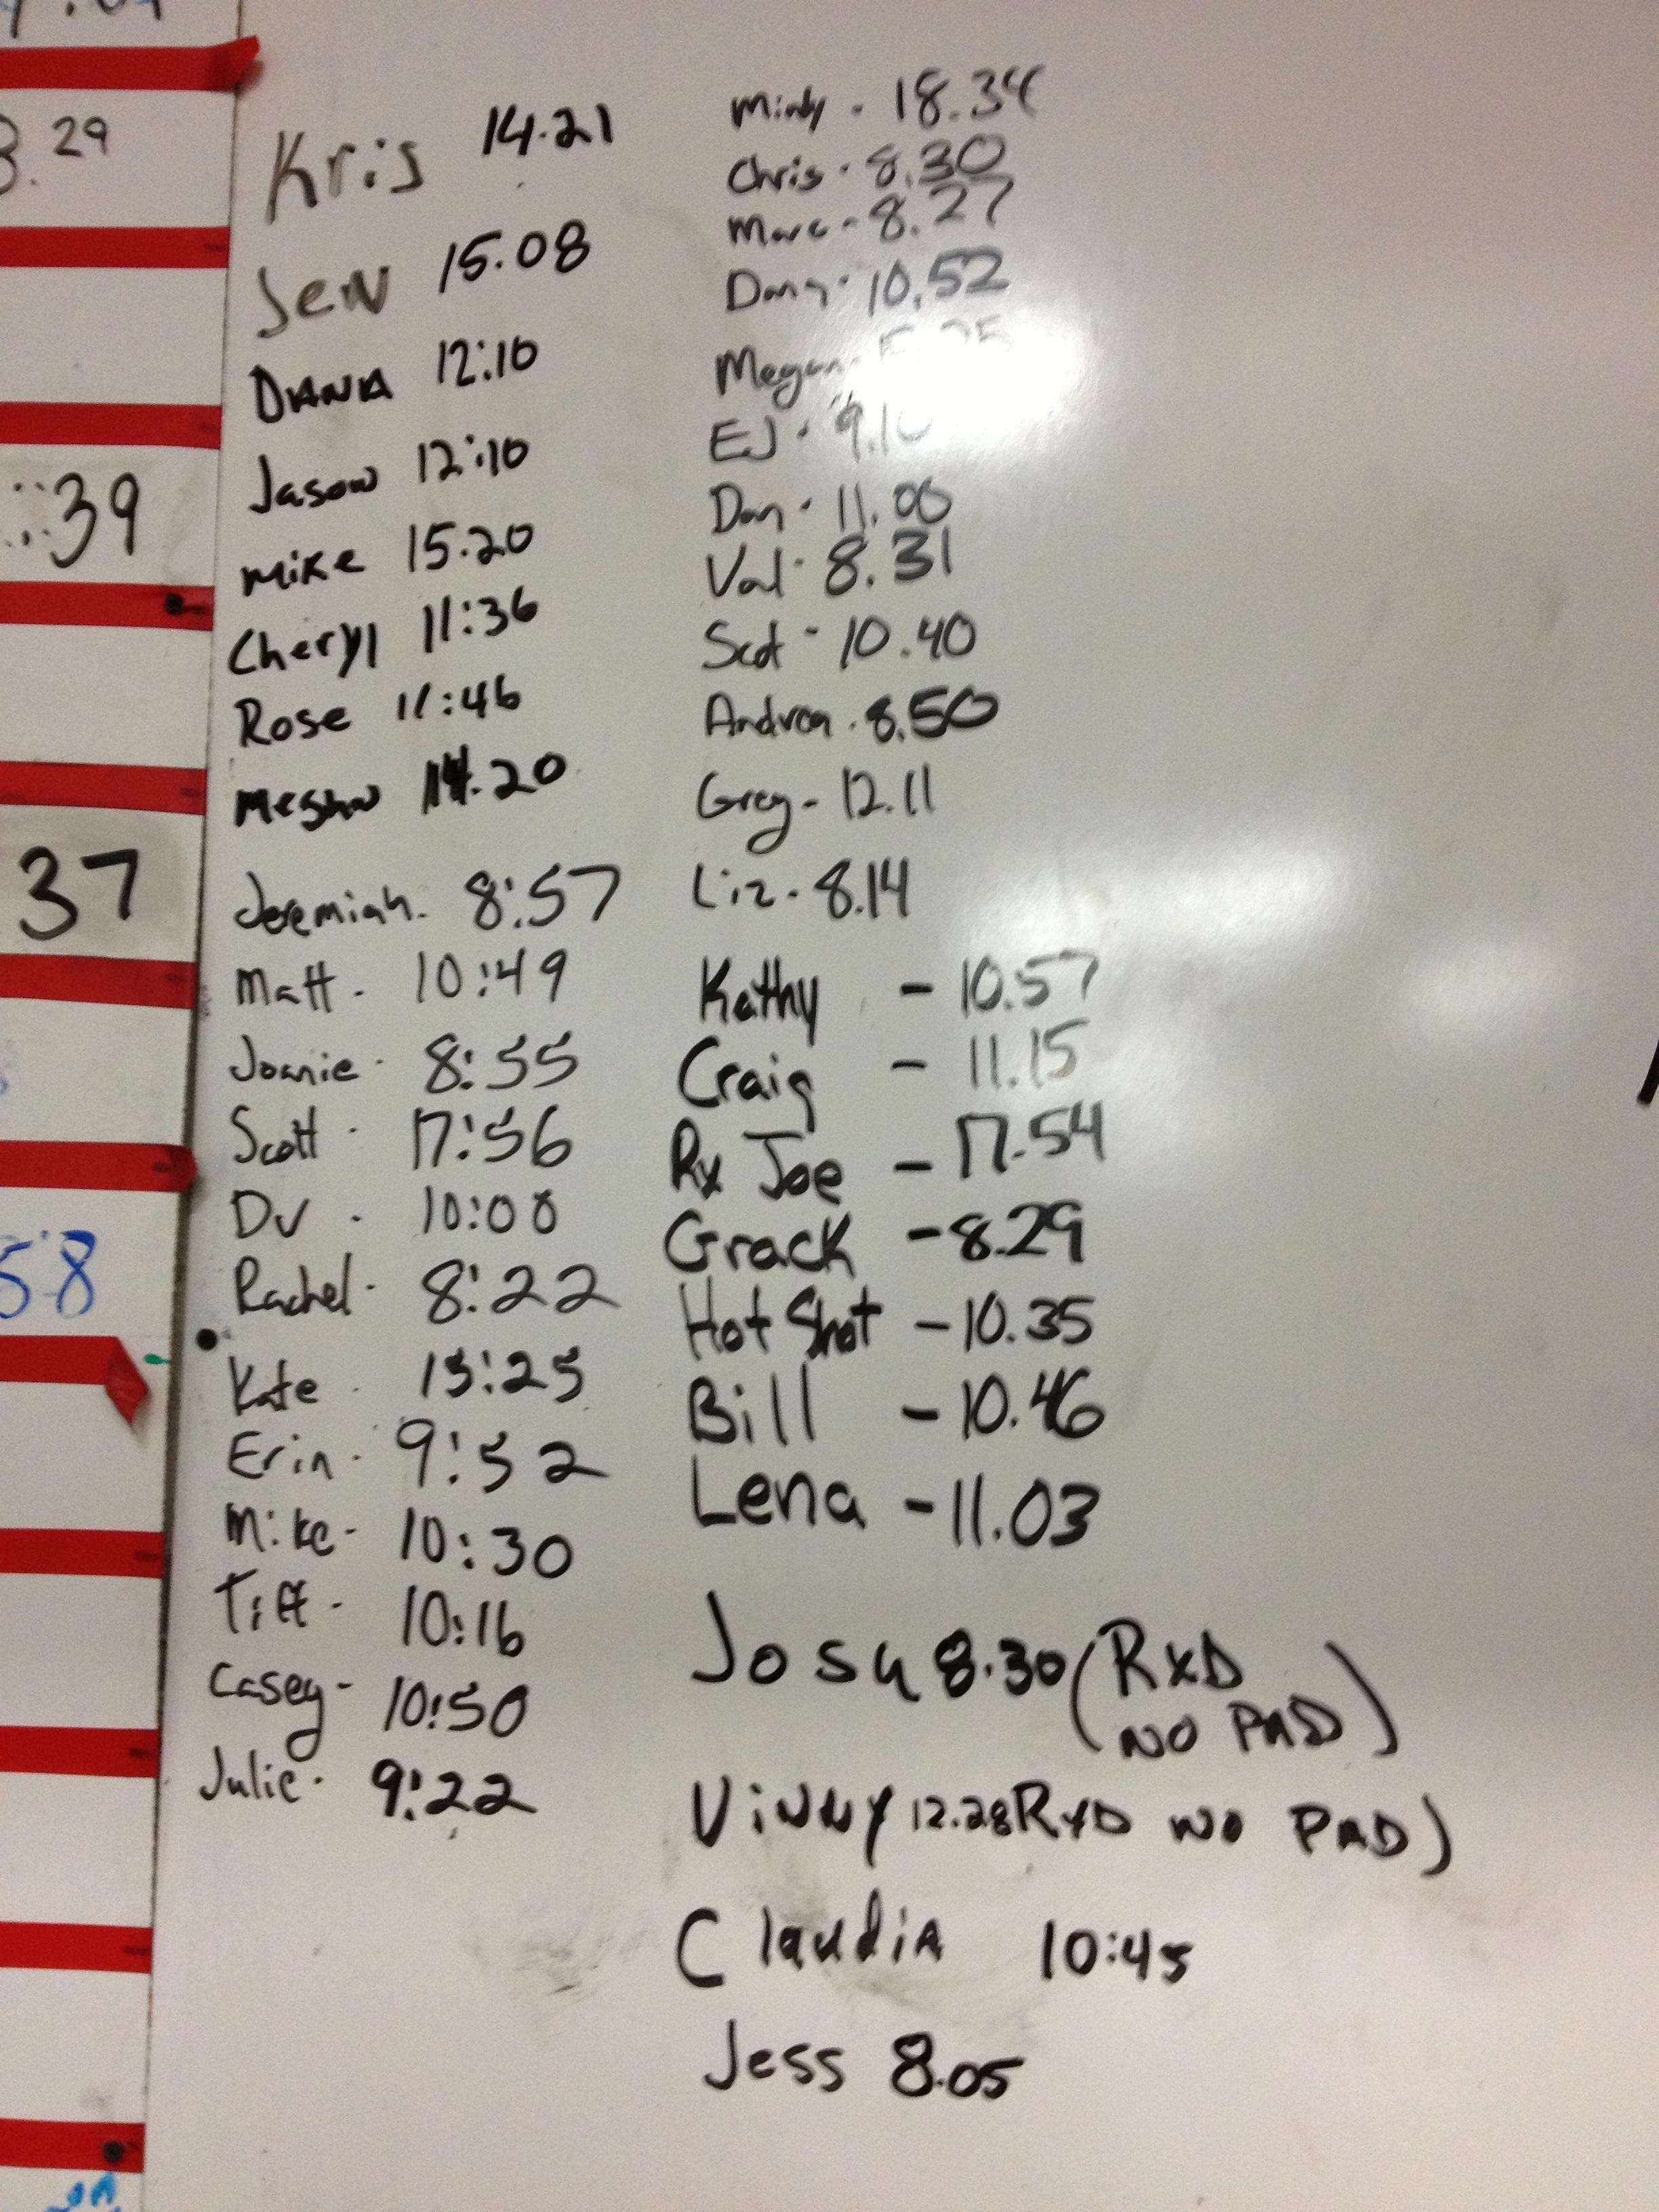 29
39
37
58
Kris 14.21
Jen 15.08
DIANA 12:10
Jason 12:10
Mike 15.20
Cheryl 11:36
Rose 11:46
Meghan 14.20
Jeremiah. 8:57
Matt. 10:49
Joanie. 8:55
Scott. 17:56
DV. 10:00
Rachel. 8:22
Kate. 13:25
Erin. 9:52
Mike- 10:30
Tiff. 10:16
Casey- 10:50
Julie. 9:22
Mindy - 18.34
Chris. 8.30
Marc- 8.27
10.52
Megan-
EJ.
Dan. 11.00
Val. 8.31
Scot - 10.40
Andrea. 8.50
Greg- 12.11
Liz. 8.14
Kathy - 10.57
Craig - 11.15
Rx Joe - 17.54
Grack - 8.29
Hot Shot - 10.35
Bill - 10.46
Lena - 11.03
Josh 8.30 (RxD
NO PAD)
Vinny 12.28 RxD NO PAD)
Claudia 10:45
Jess 8.05